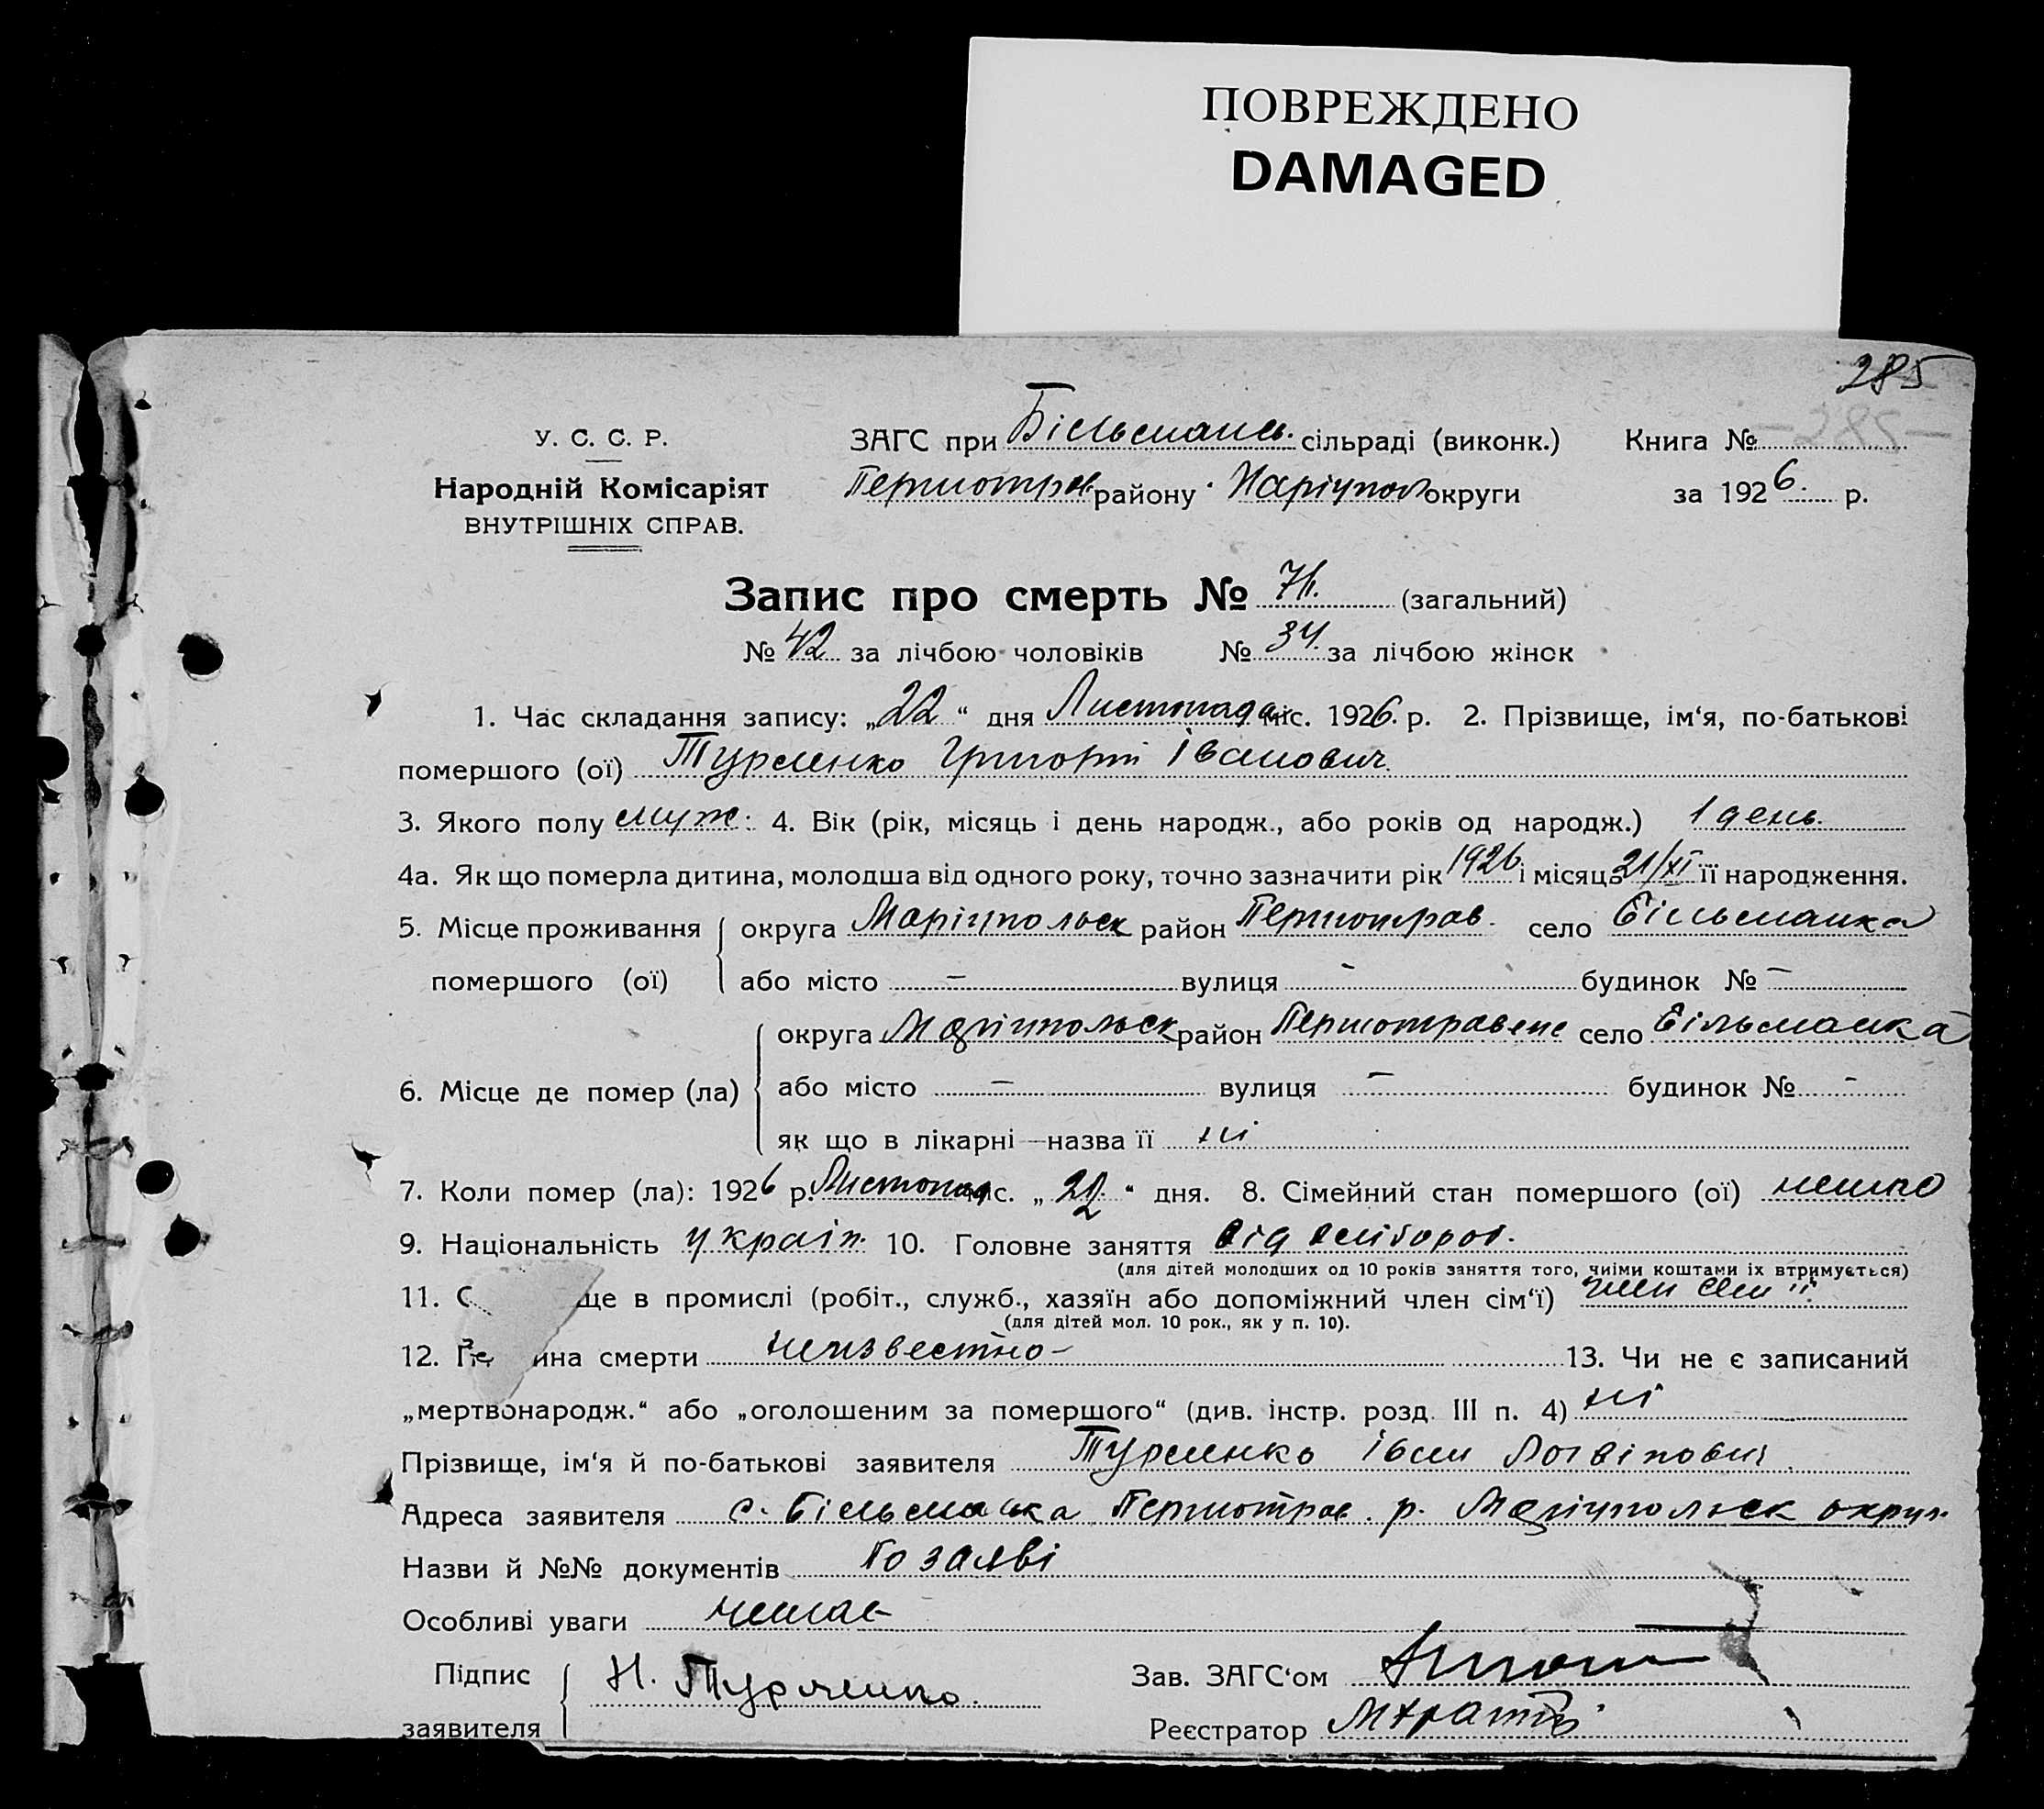 ПОВРЕЖДЕНО
DAMAGED
285
У. С. С. Р.
Народній Комісаріят
ВНУТРІШНІХ СПРАВ.
ЗАГС при Більмансь. сільраді (виконк.) Книга № -285-
Першотрав. району Маріупол округи за 1926. р.
Запис про смерть № 76. (загальний)
№ 42 за лічбою чоловіків № 34. за лічбою жінок
1. Час складання запису: „22“ дня Листопада міс. 1926. р. 2. Прізвище, ім‘я, по-батькові
помершого (ої) Турменко Григорій Іванович
3. Якого полу муж. 4. Вік (рік, місяць і день народж., або років од народж.) 1 день.
4а. Як що померла дитина, молодша від одного року, точно зазначити рік 1926 і місяць 21/XI її народження.
5. Місце проживання округа Маріупольськ район Першотрав. село Більманка
помершого (ої) або місто — вулиця - будинок № —
округа Маріупольськ район Першотравенс село Більманка
6. Місце де помер (ла) або місто — вулиця — будинок № -
як що в лікарні—назва її ні
7. Коли помер (ла): 1926 р. Листопад міс. „22“ дня. 8. Сімейний стан помершого (ої)
9. Національність україн. 10. Головне заняття від хлібороб.
(для дітей молодших од 10 років заняття того, чиїми коштами їх втримується)
11. С ще в промислі (робіт., служб., хазяїн або допоміжний член сім‘ї) член сім'ї.
(для дітей мол. 10 рок., як у п. 10).
12. ина смерти неизвестно — 13. Чи не є записаний
„мертвонародж.“ або „оголошеним за помершого“ (див. інстр. розд. III п. 4) ні
Прізвище, ім‘я й по-батькові заявителя Турменко Іван Логвінович
Адреса заявителя с. Більманка Першотрав. р. Маріупольськ округ.
Назви й №№ документів По заяві
Особливі уваги немає
Підпис
заявителя
И. Турменко.
Зав. ЗАГС‘ом
Реєстратор